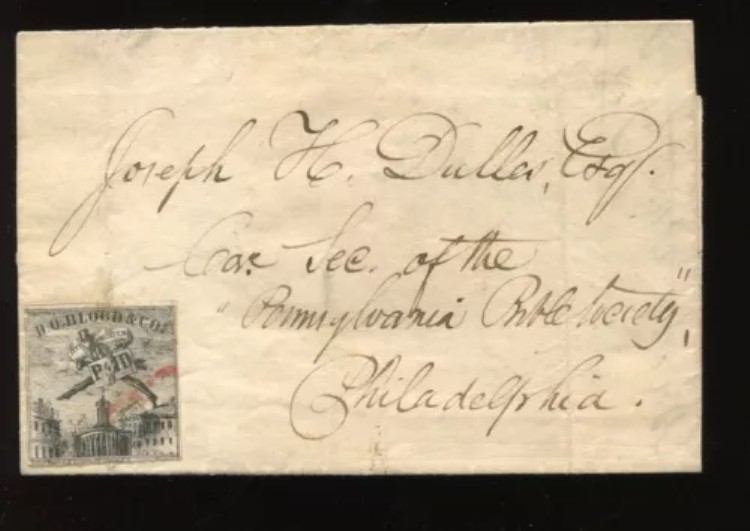 Joseph H. Dulles, Esq.
Cor. Sec. of the
"Pennsylvania Bible Society",
Philadelphia.
D.O. BLOOD & CO'S
PAID